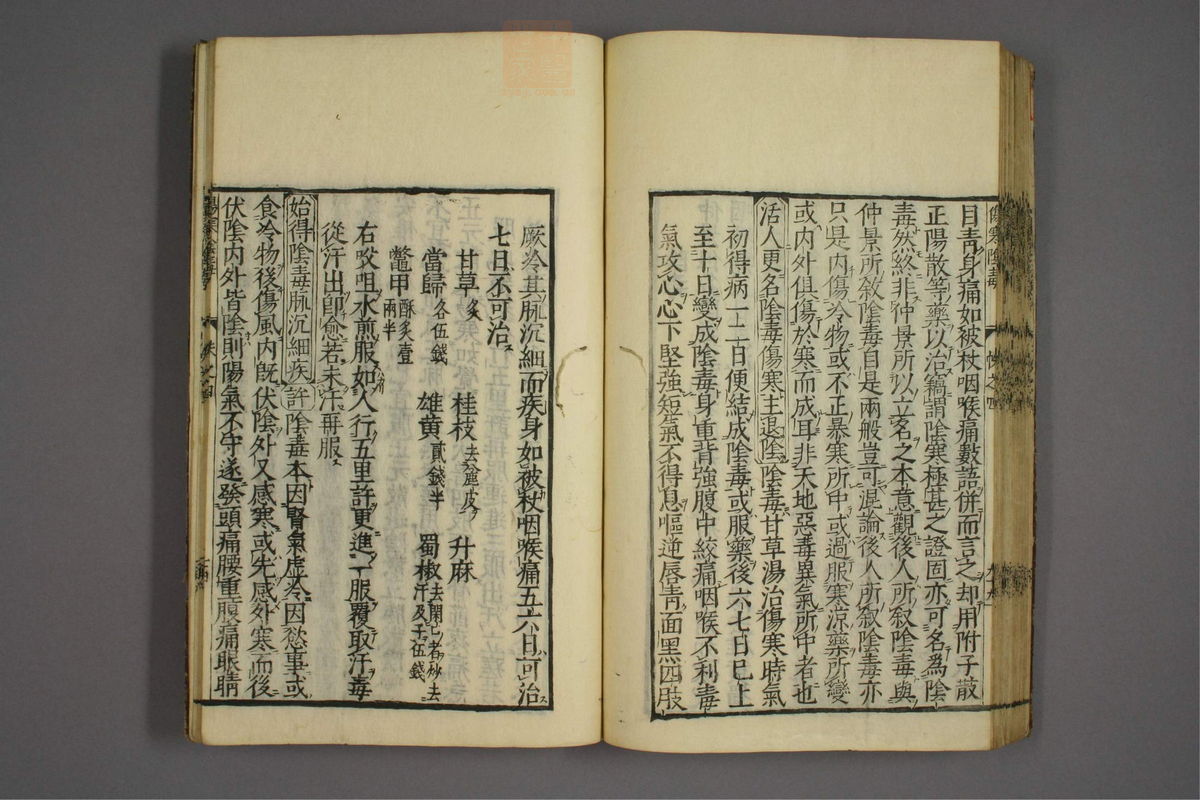 目青身痛如被杖咽喉痛數語併而言之却用附子散
正陽散等藥以治竊謂陰寒極甚之證固亦可名為陰
毒然終非仲景所以立名之本意觀後人所敘陰毒與
仲景所敘陰毒自是兩般豈可混論後人所敘陰毒亦
只是內傷冷物或不正暴寒所中或過服寒涼藥所變
或內外俱傷於寒而成耳非天地惡毒異氣所中者也
活人更名陰毒傷寒主退陰陰毒甘草湯治傷寒時氣
初得病一二日便結成陰毒或服藥後六七日已上
至十日變成陰毒身重背強腹中絞痛咽喉不利毒
氣攻心心下堅強短氣不得息嘔逆唇青面黑四肢
厥冷其脉沉細而疾身如被杖咽喉痛五六日可治
七日不可治
甘草炙 桂枝去麄皮 升麻
當歸各伍錢 雄黄貳錢半 蜀椒去閉口者炒去汗及子伍錢
鱉甲酥炙壹兩半
右㕮咀水煎服如人行五里許更進一服覆取汗毒
從汗出即愈若未汗再服
始得陰毒脉沉細疾許陰毒本因腎氣虛冷因慾事或
食冷物後傷風內既伏陰外又感寒或先感外寒而後
伏陰內外皆陰則陽氣不守遂發頭痛腰重腹痛眼睛